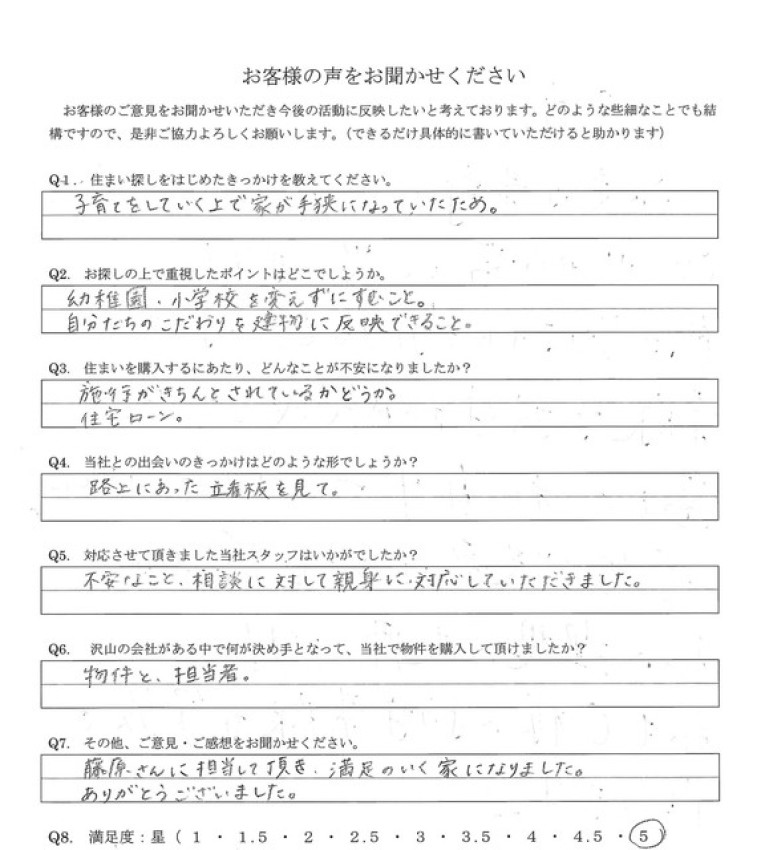 お客様の声をお聞かせください
お客様のご意見をお聞かせいただき今後の活動に反映したいと考えております。どのような些細なことでも結
構ですので、是非ご協力よろしくお願いします。（できるだけ具体的に書いていただけると助かります）
Q1. 住まい探しをはじめたきっかけを教えてください。
子育てをしていく上で家が手狭になっていたため。
Q2. お探しの上で重視したポイントはどこでしょうか。
幼稚園・小学校を変えずにすむこと。
自分たちのこだわりを建物に反映できること。
Q3. 住まいを購入するにあたり、どんなことが不安になりましたか？
施工がきちんとされているかどうか。
住宅ローン。
Q4. 当社との出会いのきっかけはどのような形でしょうか？
路上にあった立看板を見て。
Q5. 対応させて頂きました当社スタッフはいかがでしたか？
不安なこと、相談に対して親身に対応していただきました。
Q6. 沢山の会社がある中で何が決め手となって、当社で物件を購入して頂けましたか？
物件と、担当者。
Q7. その他、ご意見・ご感想をお聞かせください。
藤原さんに担当して頂き、満足のいく家になりました。
ありがとうございました。
Q8. 満足度：星（ 1 ・ 1.5 ・ 2 ・ 2.5 ・ 3 ・ 3.5 ・ 4 ・ 4.5 ・ 5 ）